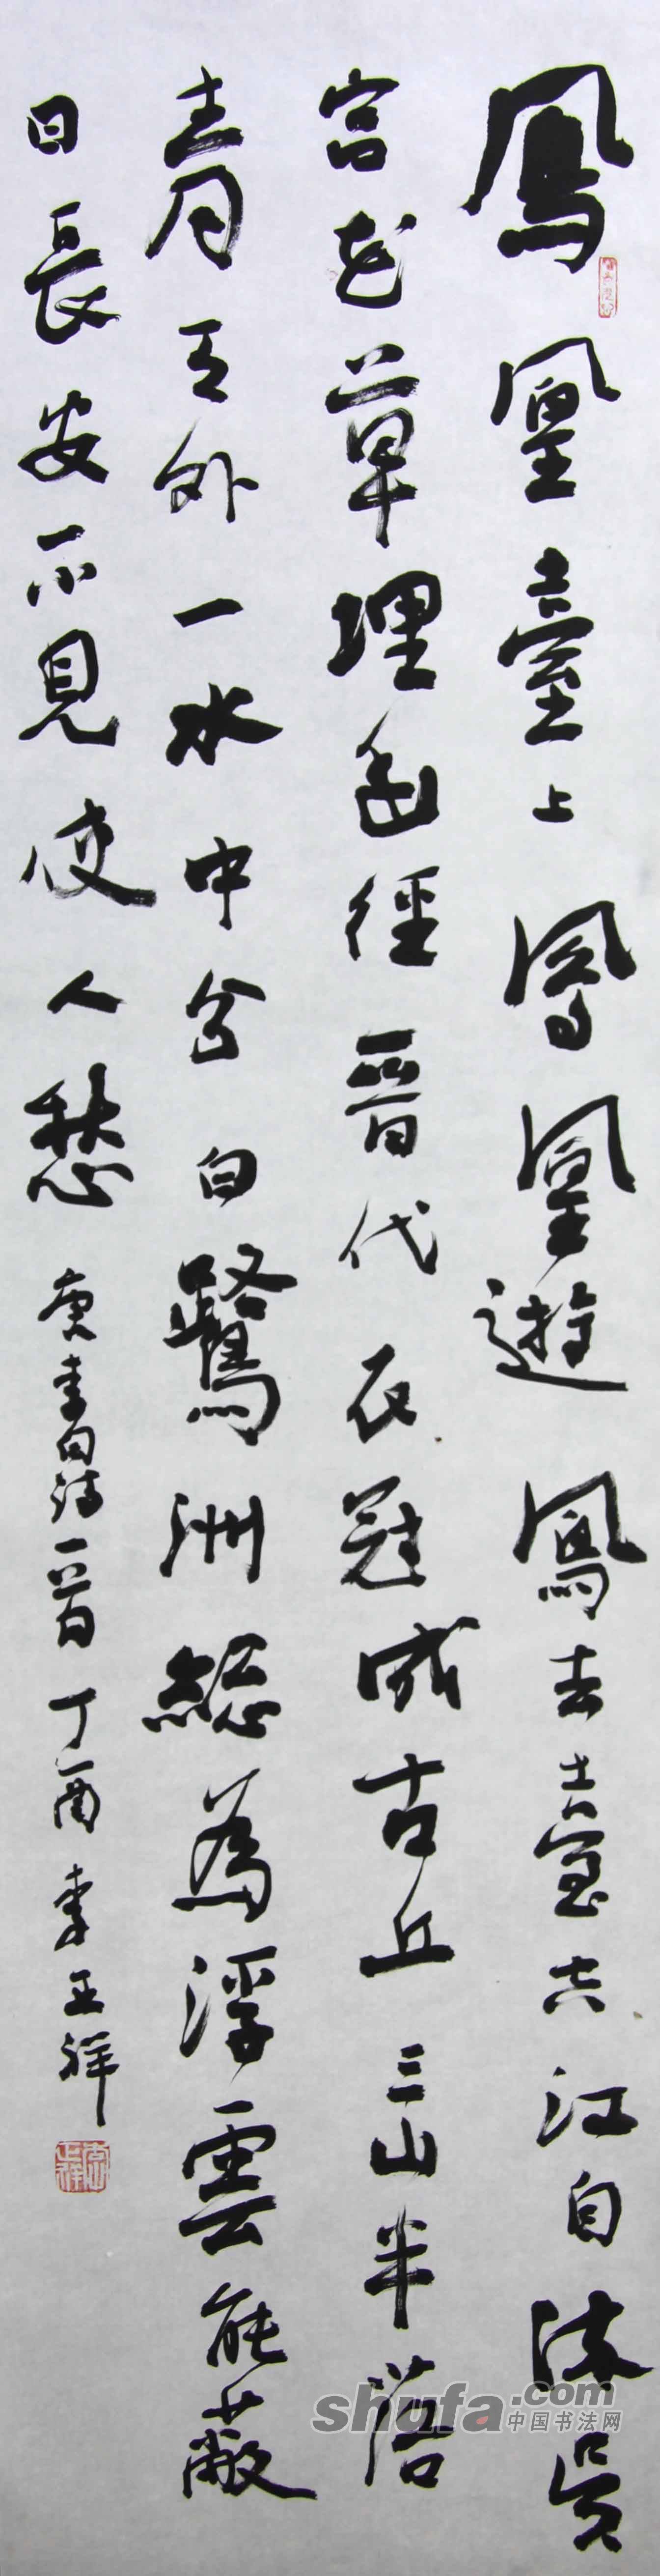 鳳凰臺上鳳凰遊鳳去臺空江自流吳
宮花草埋幽徑晉代衣冠成古丘三山半落
青天外一水中分白鷺洲總為浮雲能蔽
日長安不見使人愁 唐李白詩一首 丁酉 李正祥
shufa.com
中国书法网